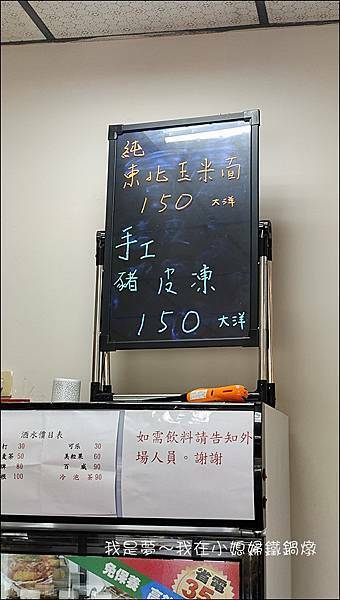 純
東北玉米面
150 大洋
手工
豬皮凍
150 大洋
酒水價目表
打 30
可乐 30
麦茶 50
美粒果 60
牌 80
百威 90
根 100
冷泡茶 90
如需飲料請告知外
場人員。謝謝
我是夢～我在小媳婦鐵鍋燉
免保養
省電
35